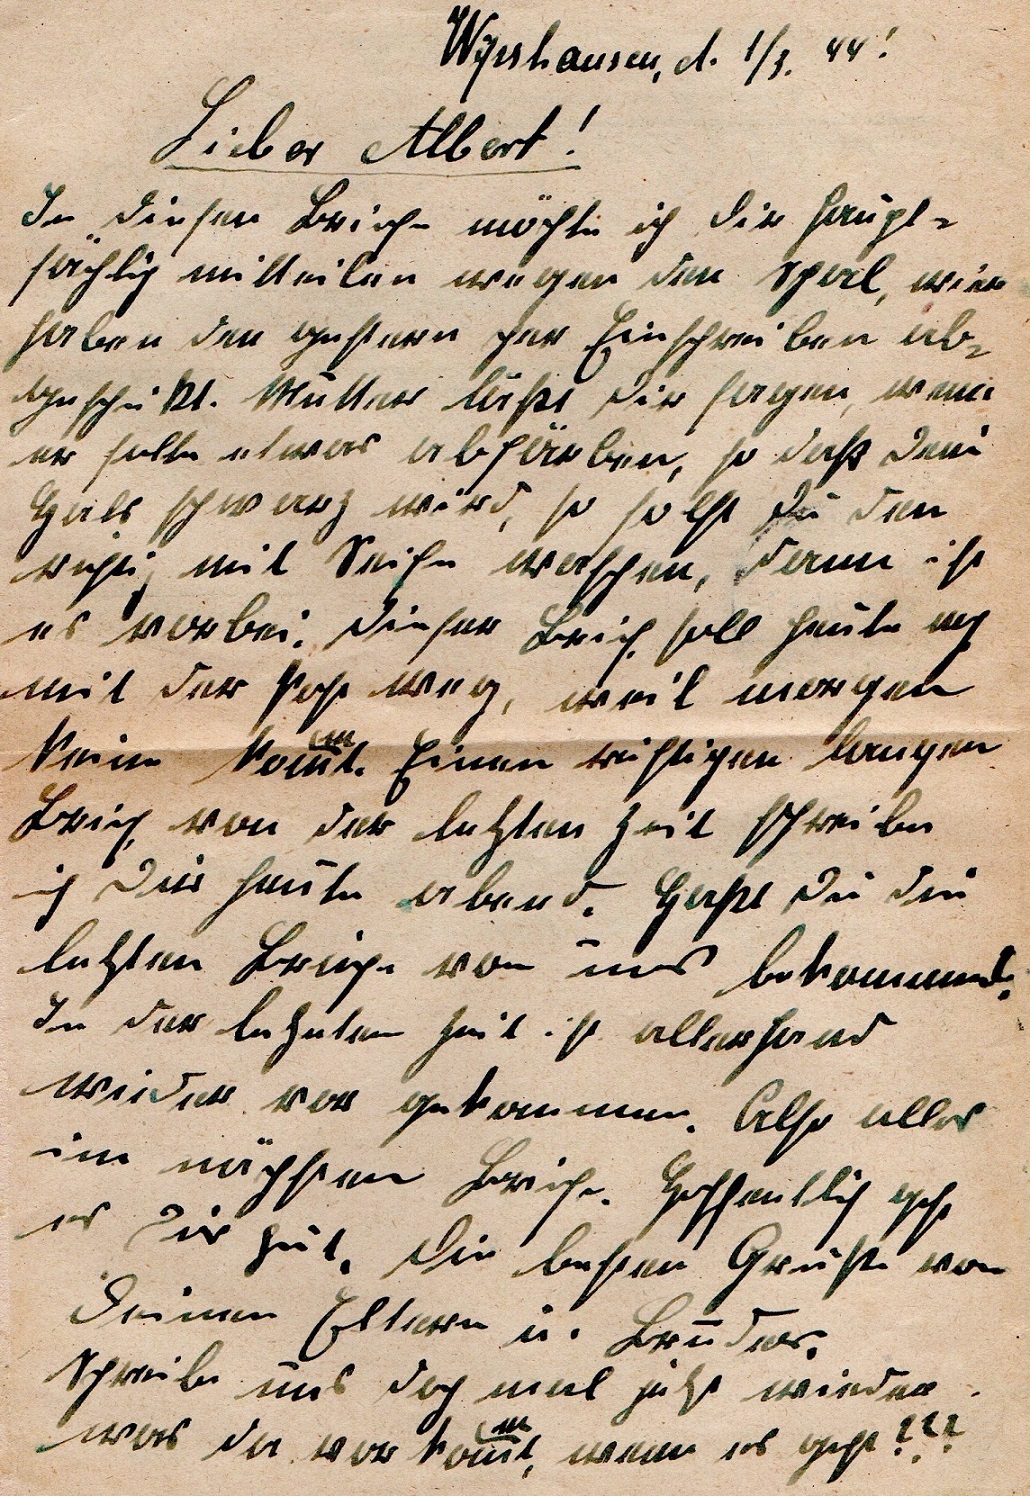 Wyershausen, d. 1/3. 44!
Lieber Albert!
In diesen Briefe möchte ich dir haupt-
sächlig mitteilen wegen den Schal, wier
haben den gestern per Einschreiben ab-
geschikt. Mutter läßt dir sagen, wenn
er sollte etwas abfärben, so daß Dein
Hals schwarz wird, so solst Du den
richtig mit Seife waschen, dann ist
es vorbei. Dieser Brief soll heute noch
mit der Post weg, weil morgen
keine kommt. Einen richtigen langen
Brief von der letzten Zeit schreibe
ich Dir heute abend. Haßt Du die
letzten Briefe von uns bekommen?
In der letzten Zeit ist allerhand
wieder vor gekommen. Also alles
im nächsten Briefe. Hoffentlich geht
es Dir gut. Die besten Grüße von
Deinen Eltern u. Bruder.
Schreibe uns doch mal jetzt wieder
was da vor kommt, wenn es geht???